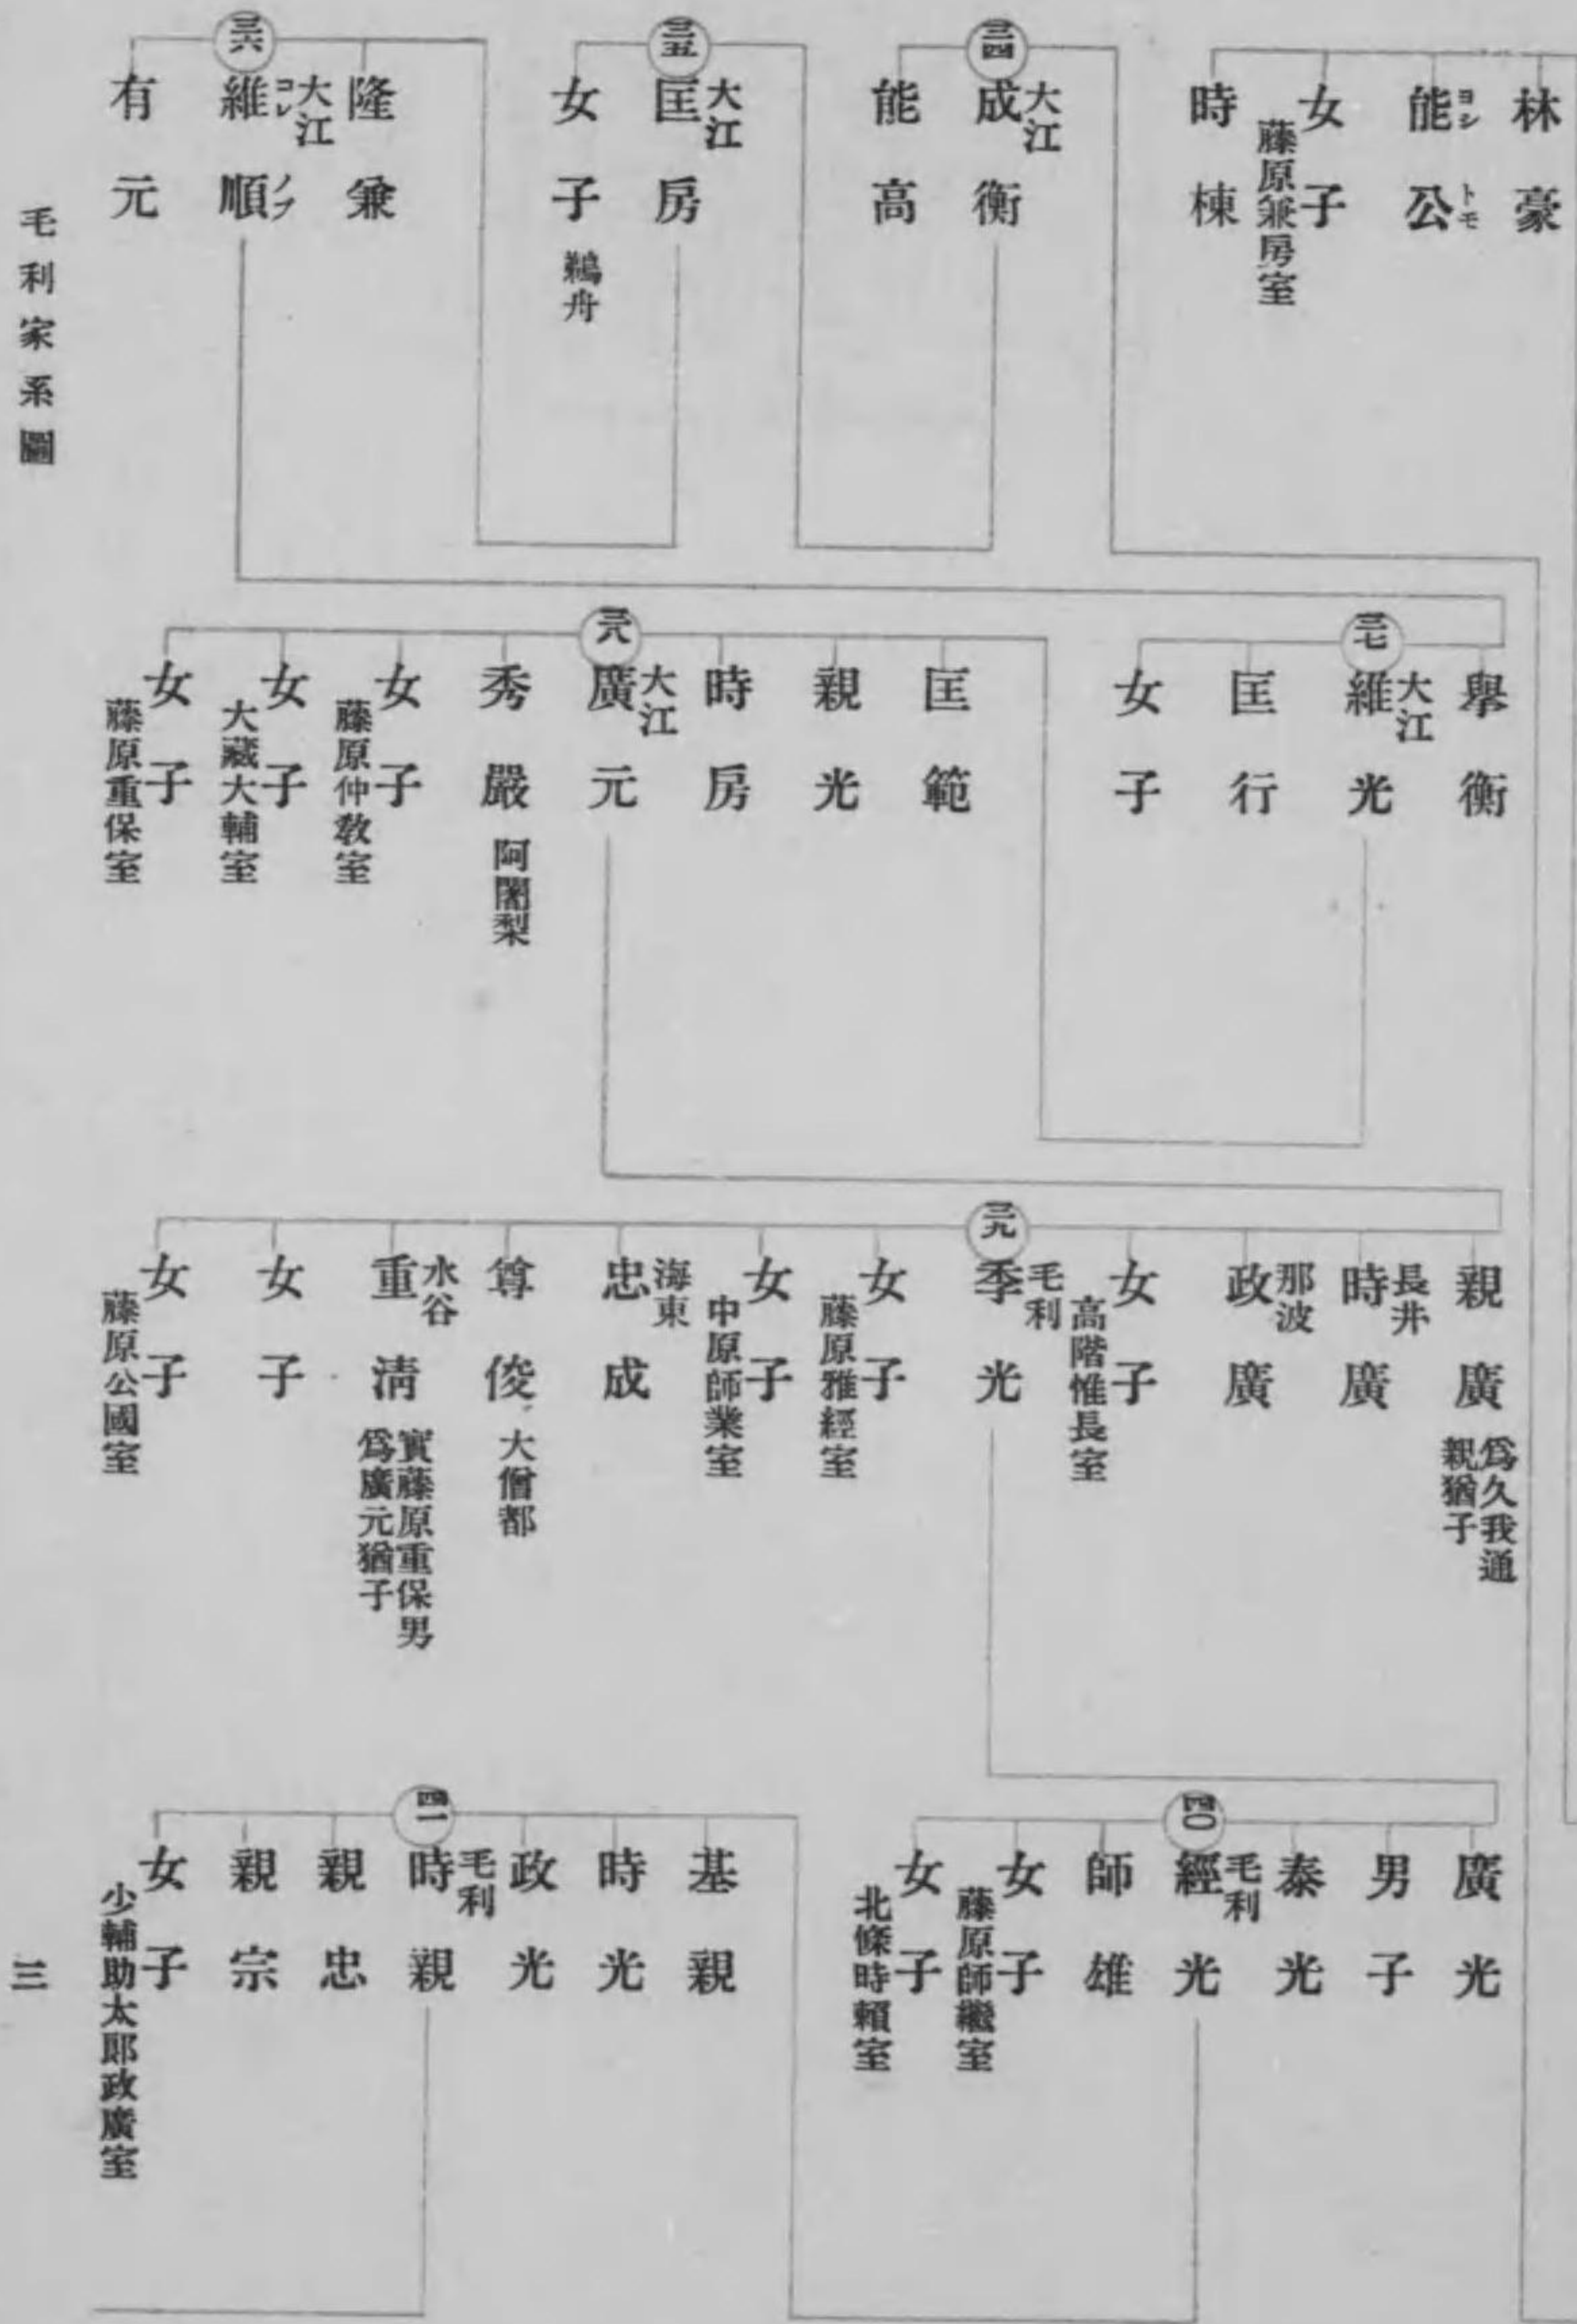 林豪
能公
ヨシ トモ
女子
藤原兼房室
時棟
三四
大江
成衡
能高
三五
大江
匡房
女子 鵜舟
隆兼
三六
大江
維順
コレ ノブ
有元
擧衡
三七
大江
維光
匡行
女子
匡範
親光
時房
三八
大江
廣元
秀嚴 阿闍梨
女子
藤原仲教室
女子
大藏大輔室
女子
藤原重保室
親廣 爲久我通
親猶子
長井
時廣
那波
政廣
女子
高階惟長室
三九
毛利
季光
女子
藤原雅經室
女子
中原師業室
海東
忠成
尊俊 大僧都
水谷
重清 實藤原重保男
爲廣元猶子
女子
女子
藤原公國室
廣光
男子
泰光
四〇
毛利
經光
師雄
女子
藤原師繼室
女子
北條時賴室
基親
時光
政光
四一
毛利
時親
親忠
親宗
女子
少輔助太郎政廣室
毛利家系圖
三